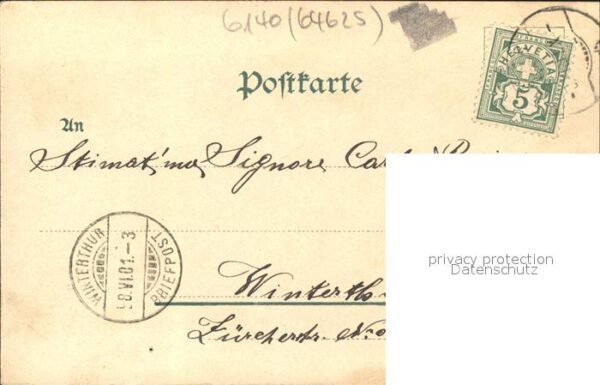 6140 (64625)
Postkarte
HELVETIA
5
An
Stimat'mo Signore
privacy protection
Datenschutz
WINTERTHUR
8.VI.01.-3
BRIEFPOST
Winterth
Zürcherstr. No